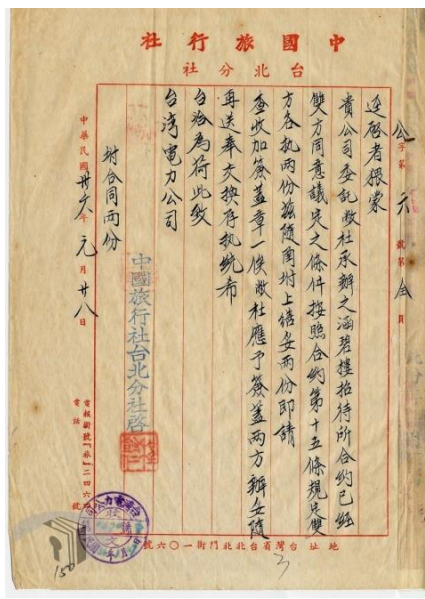 中國旅行社
台北分社
公字第 元 號第 全 頁
逕啟者猥蒙
貴公司委託敝社承辦之涵碧樓招待所合約已經
雙方同意議定之條件按照合約第十五條規定雙
方各執兩份茲隨函附上繕妥兩份即請
查收加簽蓋章一俟敝社應予簽蓋兩方辦妥隨
再送奉交換存執統希
台洽為荷此致
台湾電力公司
附合同兩份
中國旅行社台北分社啓
中華民國卅六年元月廿八日
電報掛號「旅」二四六
電話 號
地址台灣省台北北門街一〇六號
150